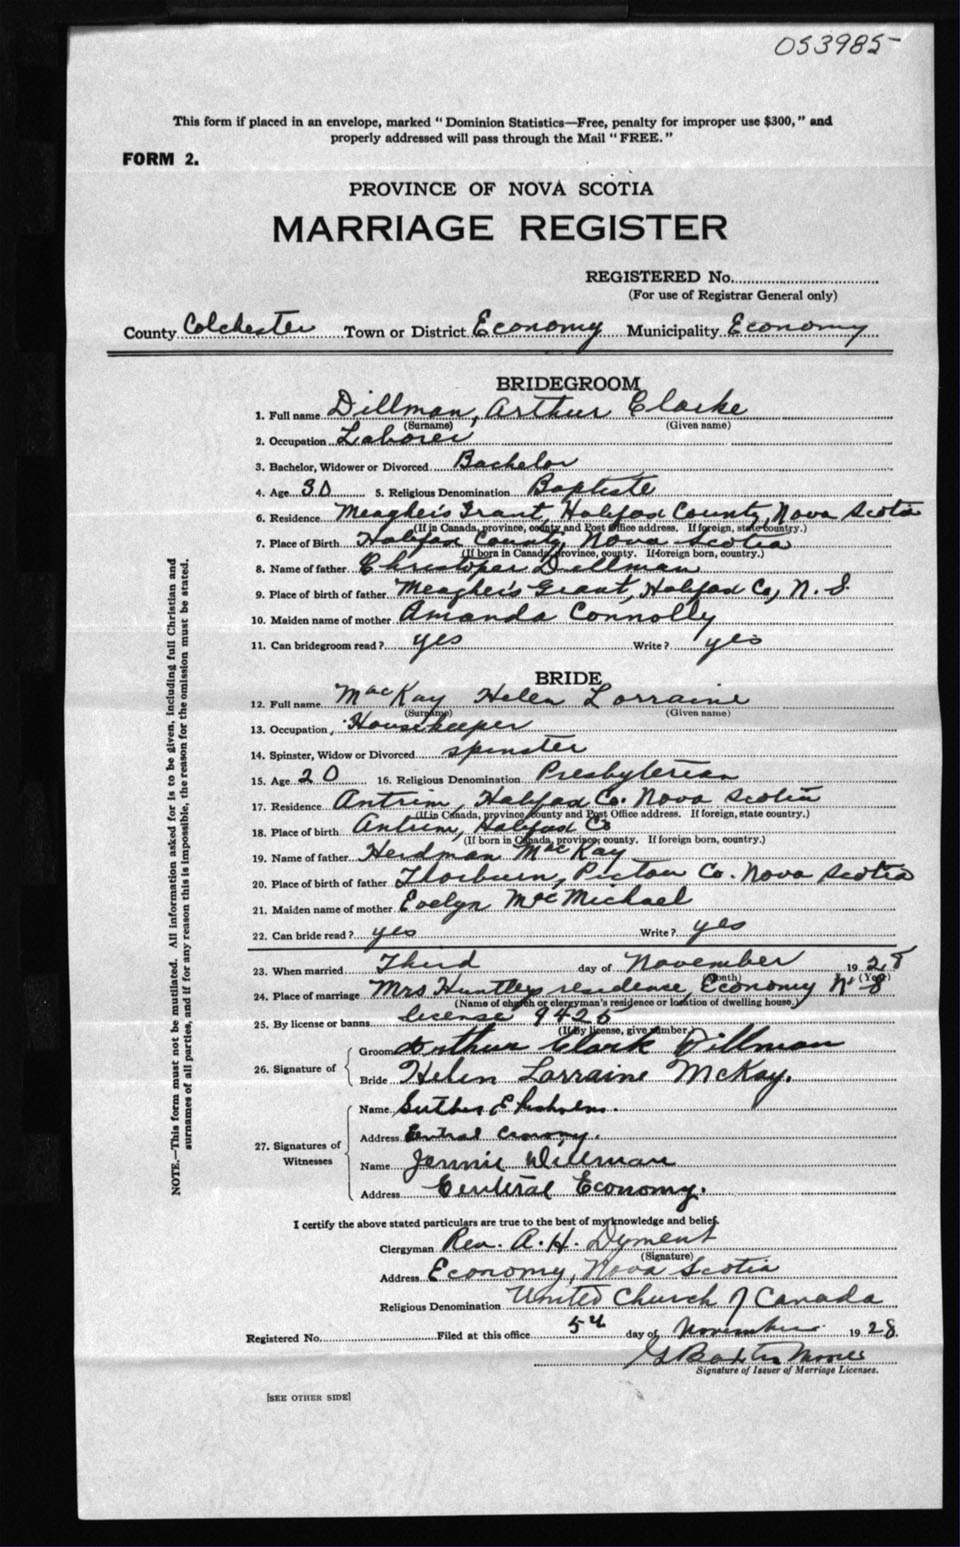 053985
This form if placed in an envelope, marked "Dominion Statistics—Free, penalty for improper use $300," and
properly addressed will pass through the Mail "FREE."
FORM 2.
PROVINCE OF NOVA SCOTIA
MARRIAGE REGISTER
REGISTERED No.
(For use of Registrar General only)
County Colchester Town or District Economy Municipality Economy
BRIDEGROOM
1. Full name Dillman, Arthur Clarke
(Surname) (Given name)
2. Occupation Laborer
3. Bachelor, Widower or Divorced Bachelor
4. Age 30 5. Religious Denomination Baptiste
6. Residence Meagher's Grant, Halifax County, Nova Scotia
(If in Canada, province, county and Post Office address. If foreign, state country.)
7. Place of Birth Halifax County, Nova Scotia
(If born in Canada, province, county. If foreign born, country.)
8. Name of father Christoper Dillman
9. Place of birth of father Meagher's Grant, Halifax Co, N. S.
10. Maiden name of mother Amanda Connolly
11. Can bridegroom read? yes Write? yes
BRIDE
12. Full name MacKay Helen Lorraine
(Surname) (Given name)
13. Occupation Housekeeper
14. Spinster, Widow or Divorced spinster
15. Age 20 16. Religious Denomination Presbyterian
17. Residence Antrim, Halifax Co. Nova Scotia
(If in Canada, province, county and Post Office address. If foreign, state country.)
18. Place of birth Antrim, Halifax Co
(If born in Canada, province, county. If foreign born, country.)
19. Name of father Herdman MacKay
20. Place of birth of father Thorburn, Pictou Co. Nova Scotia
21. Maiden name of mother Evelyn McMichael
22. Can bride read? yes Write? yes
23. When married Third day of November 1928
(Month) (Year)
24. Place of marriage Mrs Huntleys residence, Economy N-S
(Name of church or clergyman's residence or location of dwelling house.)
25. By license or banns License 9425
(If by license, give number)
26. Signature of
Groom Arthur Clark Dillman
Bride Helen Lorraine McKay.
27. Signatures of Witnesses
Name
Address Central Economy.
Name Jennie Dillman
Address Central Economy.
I certify the above stated particulars are true to the best of my knowledge and belief.
Clergyman Rev. A. H. Dyment
(Signature)
Address Economy, Nova Scotia
Religious Denomination United Church of Canada
Registered No. Filed at this office 5th day of November 1928.
G Baxter
Signature of Issuer of Marriage Licenses.
[SEE OTHER SIDE]
NOTE.—This form must not be mutilated. All information asked for is to be given, including full Christian and
surnames of all parties, and if for any reason this is impossible, the reason for the omission must be stated.